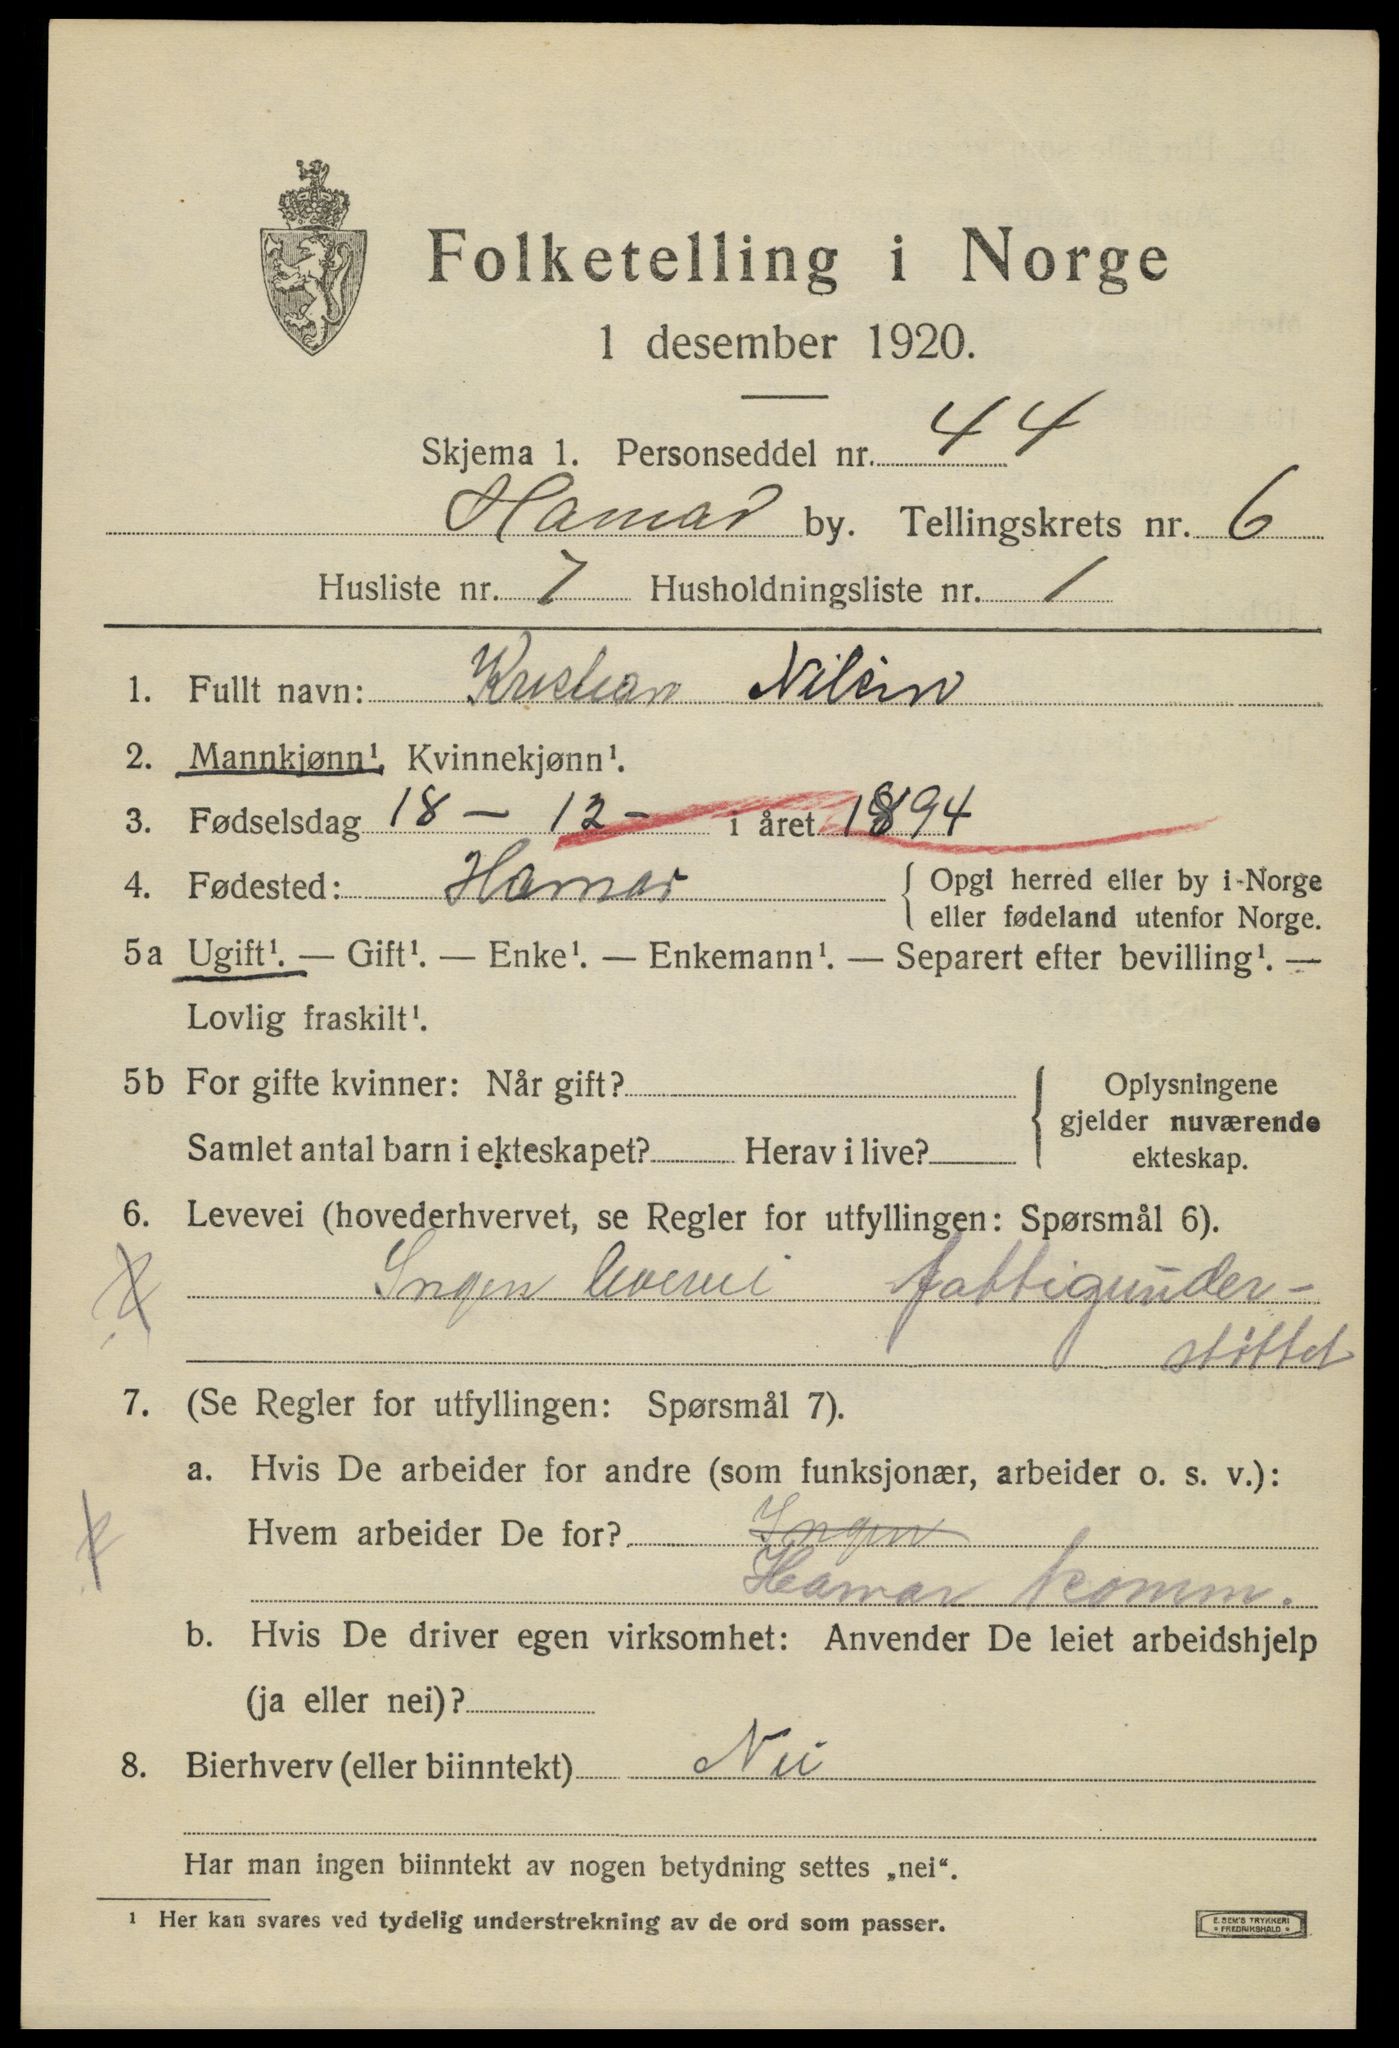 Folketelling i Norge
1 desember 1920.
Skjema 1. Personseddel nr. 44
Hamar by. Tellingskrets nr. 6
Husliste nr. 7 Husholdningsliste nr. 1
1. Fullt navn: Kristian Nilsen
2. Mannkjønn¹. Kvinnekjønn¹.
3. Fødselsdag 18 — 12 – i året 1894
4. Fødested: Hamar { Opgi herred eller by i Norge
eller fødeland utenfor Norge.
5a Ugift¹. — Gift¹. — Enke¹. — Enkemann¹. — Separert efter bevilling¹. —
Lovlig fraskilt¹.
5b For gifte kvinner: Når gift? { Oplysningene
gjelder nuværende
Samlet antal barn i ekteskapet? Herav i live? ekteskap.
6. Levevei (hovederhvervet, se Regler for utfyllingen: Spørsmål 6).
Ingen levevei fattigunder-
støttet
7. (Se Regler for utfyllingen: Spørsmål 7).
a. Hvis De arbeider for andre (som funksjonær, arbeider o. s. v.):
Hvem arbeider De for? Ingen
Hamar komm.
b. Hvis De driver egen virksomhet: Anvender De leiet arbeidshjelp
(ja eller nei)?
8. Bierhverv (eller biinntekt) Nei
Har man ingen biinntekt av nogen betydning settes „nei“.
¹ Her kan svares ved tydelig understrekning av de ord som passer.
E. SEM'S TRYKKERI
FREDRIKSHALD